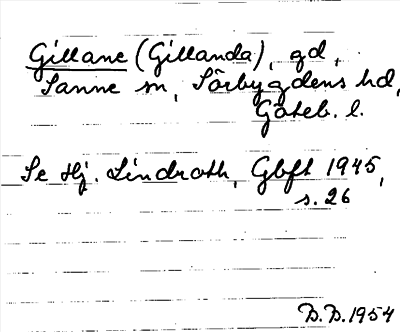 Gillane (Gillanda), gd,
Sanne sn, Sörbygdens hd,
Göteb. l.
Se Hj. Lindroth, Gbft 1945,
s. 26
D.D. 1954